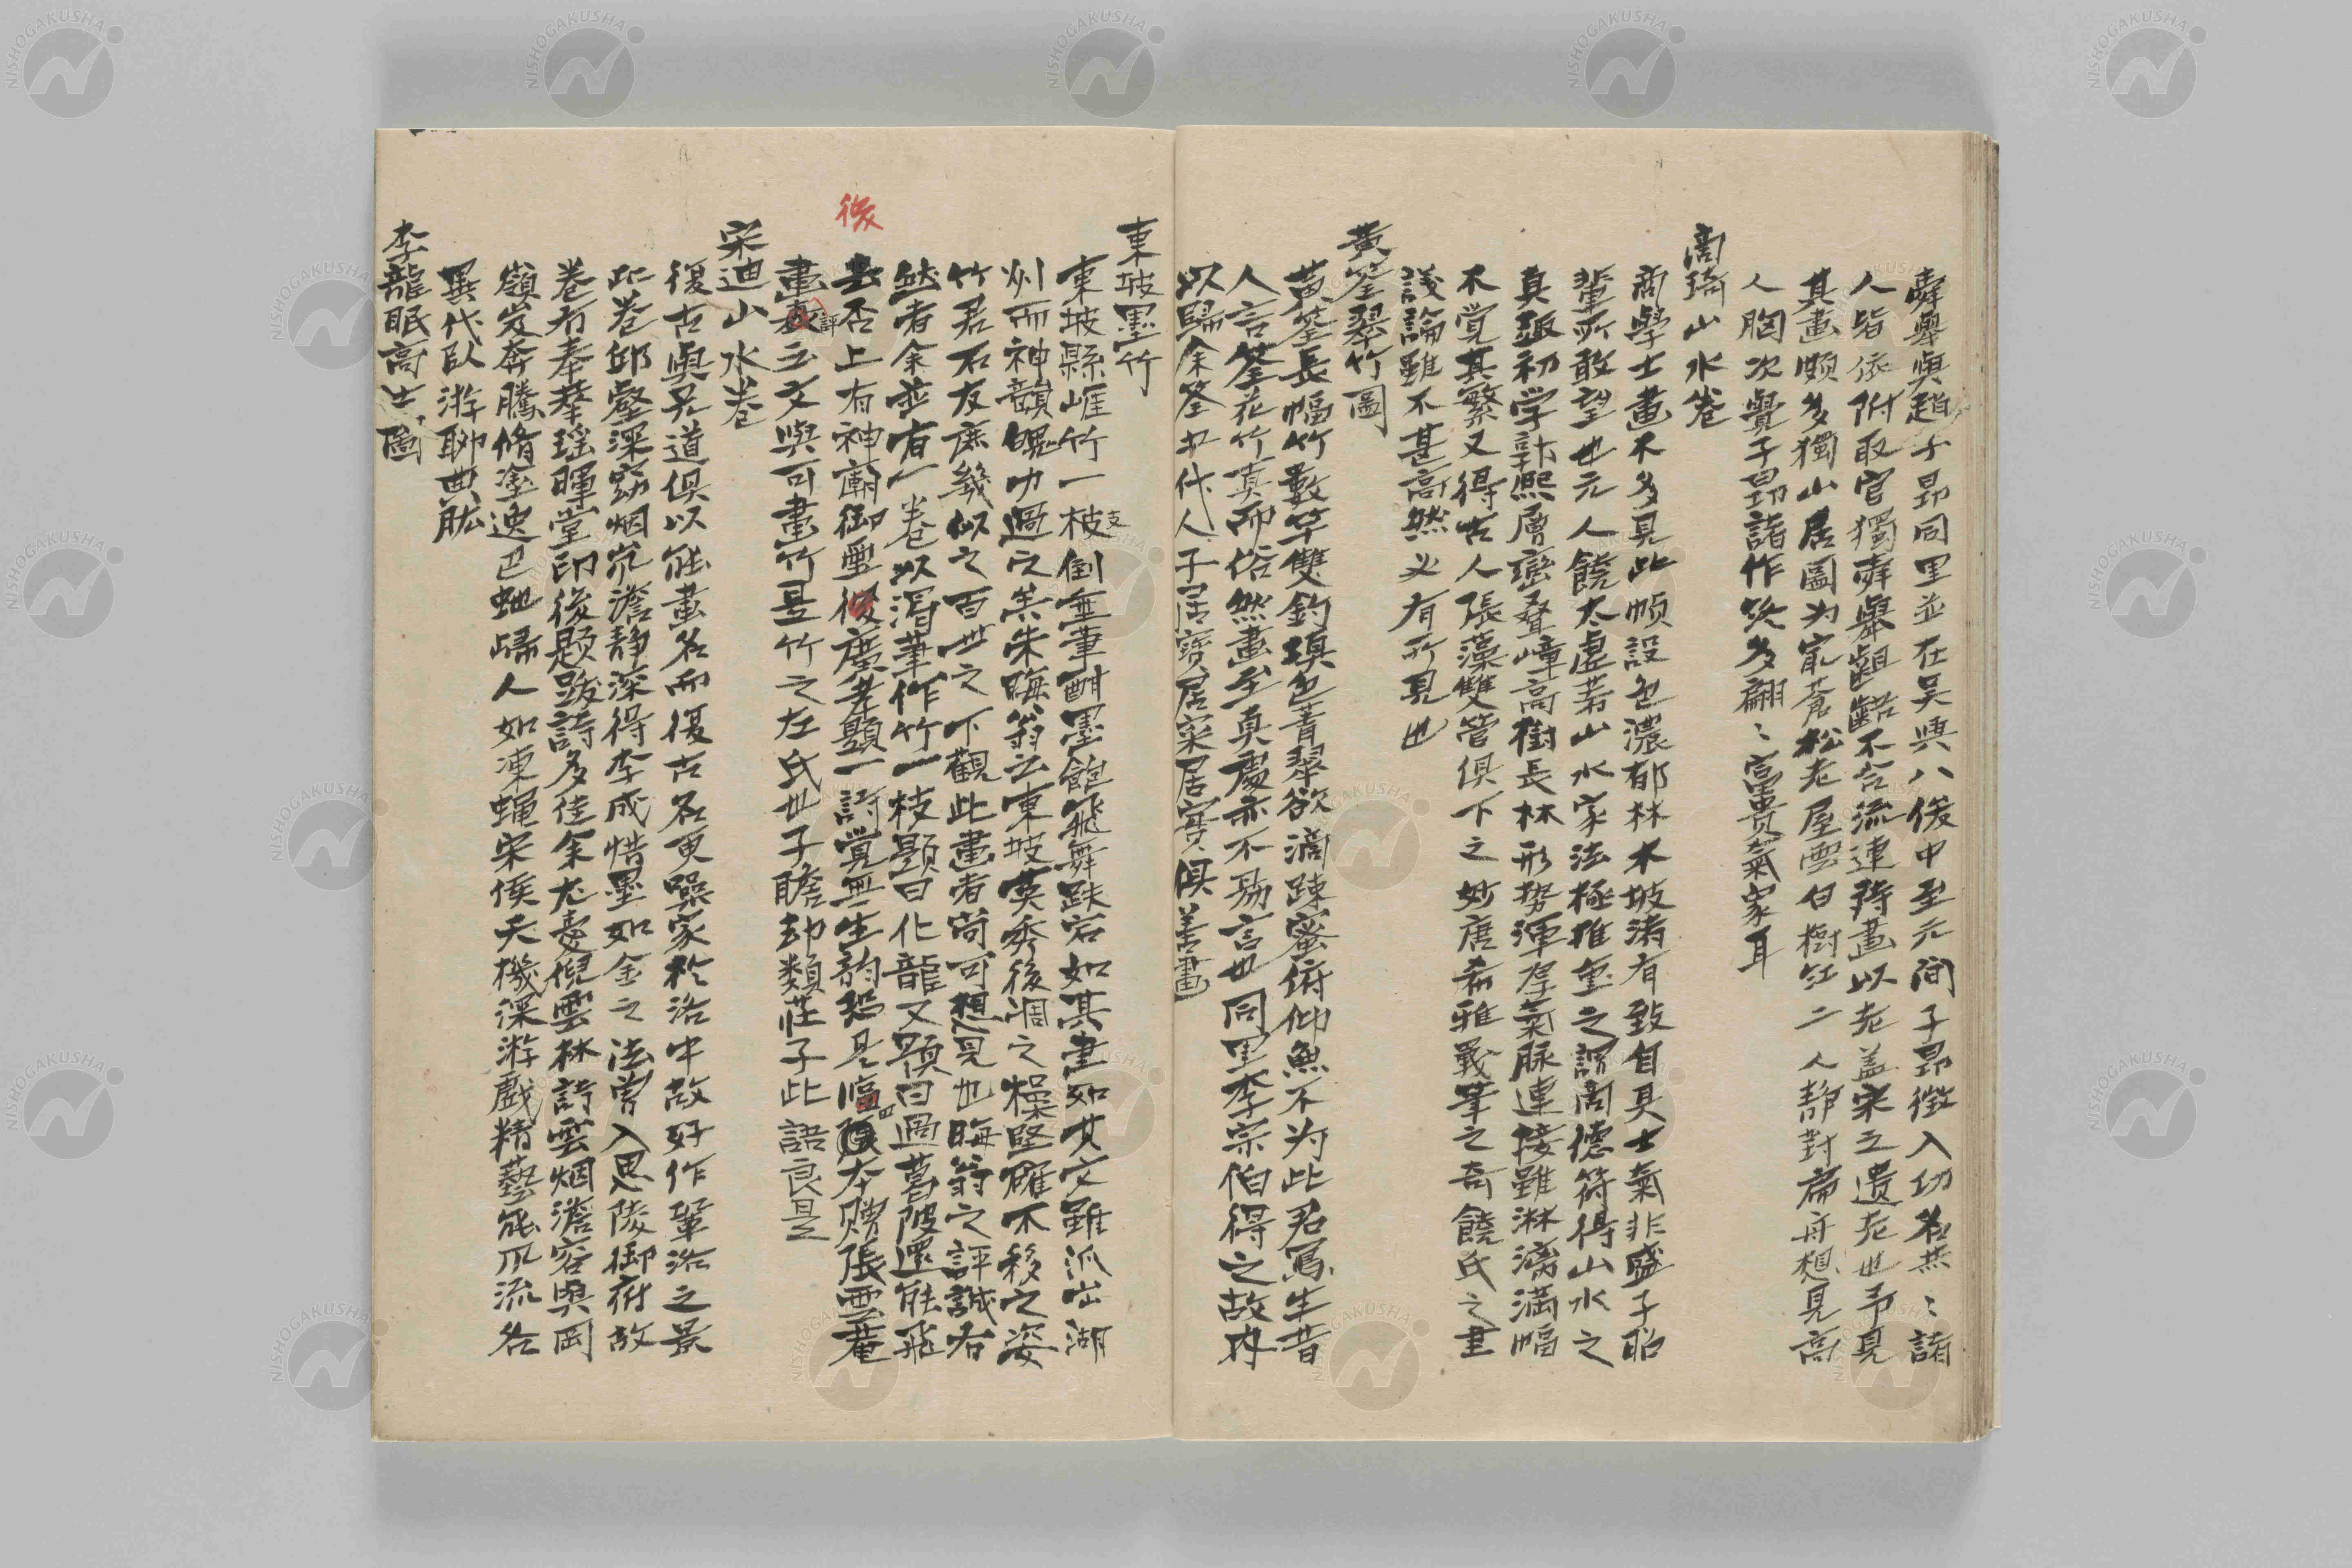 舜舉與趙子昂同里並在吴興八俊中至元間子昂徵入功名燕〻諸
人皆依附取官獨舜舉齟齬不合流連詩畫以老盖宋之遺老也予見
其畫頗多獨山居圖为最蒼松老屋雲白樹红二人静對扁舟想見高
人胸次覺子昂諸作終多翩〻富貴氣象耳
商琦山水卷
商學士畫不多見此幀設色濃郁林木坡渚有致自具士氣非盛子昭
輩所敢望也元人饒太虚若山水家法極推重之謂商德符得山水之
真趣初学郭熙層巒叠嶂高樹長林形势渾厚氣脉連接雖淋漓满幅
不覚其繁又得古人張藻雙管俱下之妙唐希雅戰筆之奇饒氏之畫
議論雖不甚高然必有所見也
黄筌翠竹圖
黄筌長幅竹數竿雙钓填色菁翠欲滴踈蜜俯仰無不为此君寫生昔
人言筌花竹真而俗然畫至真處亦不易言也同里李宗伯得之故内
以歸余筌五代人子居寶居寀居實俱善畫
東坡墨竹
東坡縣崕竹一枝倒垂筆酣墨飽飛舞跌宕如其書如其文雖派出湖
州而神韻魄力過之矣朱晦翁云東坡英秀後凋之操堅確不移之姿
竹君石友庶幾似之百世之下觀此畫者尚可想見也晦翁之評誠有
然者余並有一卷以渴筆作竹一枝題曰化龍又題曰過葛陂還能飛
去否上有神廟御璽後廣孝題一詩覚無生韵恐是临本贈張雲菴
畫評云文與可畫竹是竹之左氏也子瞻却類莊子此語良是
後
宋迪山水卷
復古與兄道俱以能畫名而復古名更噪家於洛中故好作鞏洛之景
此卷邱壑深窈烟岚澹静深得李成惜墨如金之法曾入思陵御府故
卷有奉華瑶暉堂印後題跋詩多佳余尤愛倪雲林詩雲烟澹容與岡
嶺岌奔騰脩塗逸巴虵歸人如凍蝇宋侯天機深游戲精藝能爪流名
異代臥游聊曲肱
李龍眠高士圖